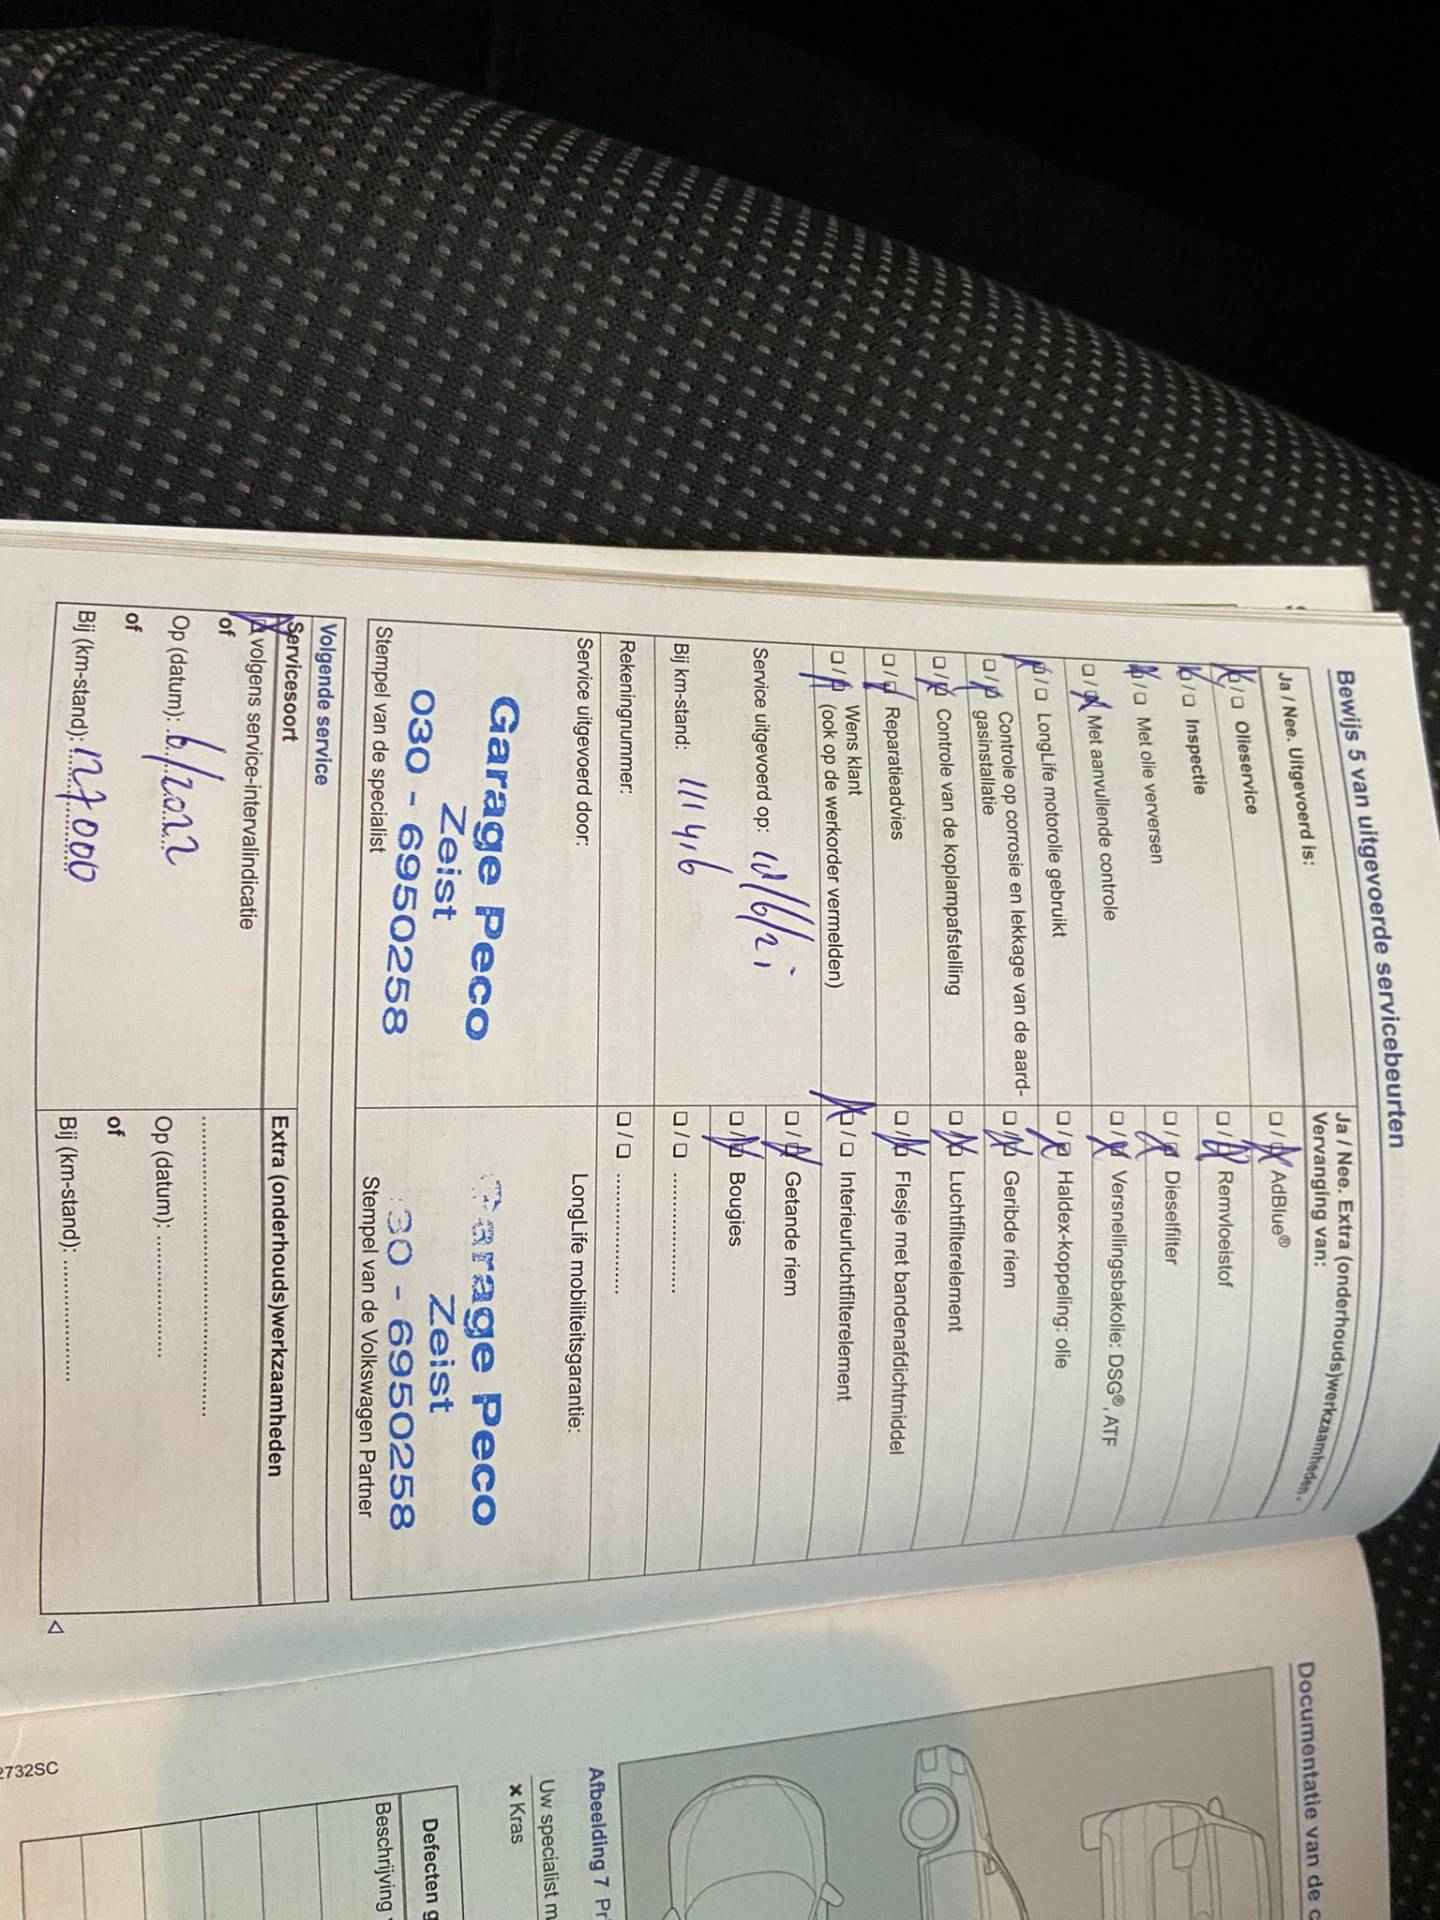 Bewijs 5 van uitgevoerde servicebeurten
Ja / Nee. Uitgevoerd is:
Olieservice
Inspectie
Met olie verversen
Met aanvullende controle
LongLife motorolie gebruikt
Controle op corrosie en lekkage van de aard-
gasinstallatie
Controle van de koplampafstelling
Reparatieadvies
Wens klant
(ook op de werkorder vermelden)
Service uitgevoerd op:
Bij km-stand: 111416
Rekeningnummer:
Service uitgevoerd door:
Garage Peco
Zeist
030 - 6950258
Stempel van de specialist
Ja / Nee. Extra (onderhouds)werkzaamheden -
Vervanging van:
AdBlue®
Remvloeistof
Dieselfilter
Versnellingsbakolie: DSG®, ATF
Haldex-koppeling: olie
Geribde riem
Luchtfilterelement
Flesje met bandenafdichtmiddel
Interieurluchtfilterelement
Getande riem
Bougies
LongLife mobiliteitsgarantie:
Garage Peco
Zeist
30 - 6950258
Stempel van de Volkswagen Partner
Volgende service
Servicesoort
volgens service-intervalindicatie
of
Op (datum): 6/2022
of
Bij (km-stand): 127000
Extra (onderhouds)werkzaamheden
Op (datum):
of
Bij (km-stand):
Documentatie van de
Afbeelding 7
Uw specialist
x Kras
Defecten
Beschrijving
2732SC